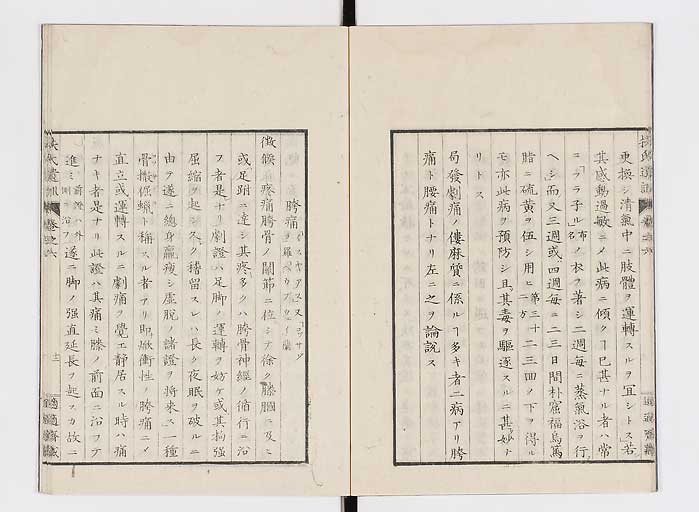 更換シ清氣中ニ肢體ヲ運轉スルヲ宜シトス若
其感動過敏ニメ此病ニ傾クヿ已甚ナル者ハ常
ニフラ子ル布ノ名ノ衣ヲ著シ二週每ニ蒸氣浴ヲ行
ヘシ而又三週或四週每ニ二三日間朴窟福烏篤
脂ニ硫黃ヲ伍シ用ヒ第三十二三四ノ二方下ヲ得ル
モ亦此病ヲ預防シ且其毒ヲ驅逐スルニ甚妙ナ
リトス
局發劇痛ノ僂麻質ニ係ルヿ多キ者二病アリ胯
痛ト腰痛トナリ左ニ之ヲ論說ス
胯痛
徴候 疼痛胯骨ノ關節ニ位シテ徐ク膝膕ニ及ヒ
或足跗ニ達シ其疼多クハ胯骨神經ノ循行ニ沿
フ者是ナリ劇證ハ足脚ノ運轉ヲ妨ケ或其拘强
屈縮ヲ起シ久ク稽留スレハ長ク夜眠ヲ破ルニ
由テ遂ニ總身羸瘦シ虛脫ノ諸證ヲ將來ス一種
骨掀倔蠟ト稱スル者アリ卽焮衝性ノ胯痛ニメ
直立或運轉スルニ劇痛ヲ覺エ靜居スル時ハ痛
ナキ者是ナリ此證ハ其痛ミ膝ノ前面ニ沿フテ
進ミ前證ハ外側ニ沿フ遂ニ脚ノ强直延長ヲ起スカ故ニ
扶氏遺訓
卷之六
十二
適適齋藏